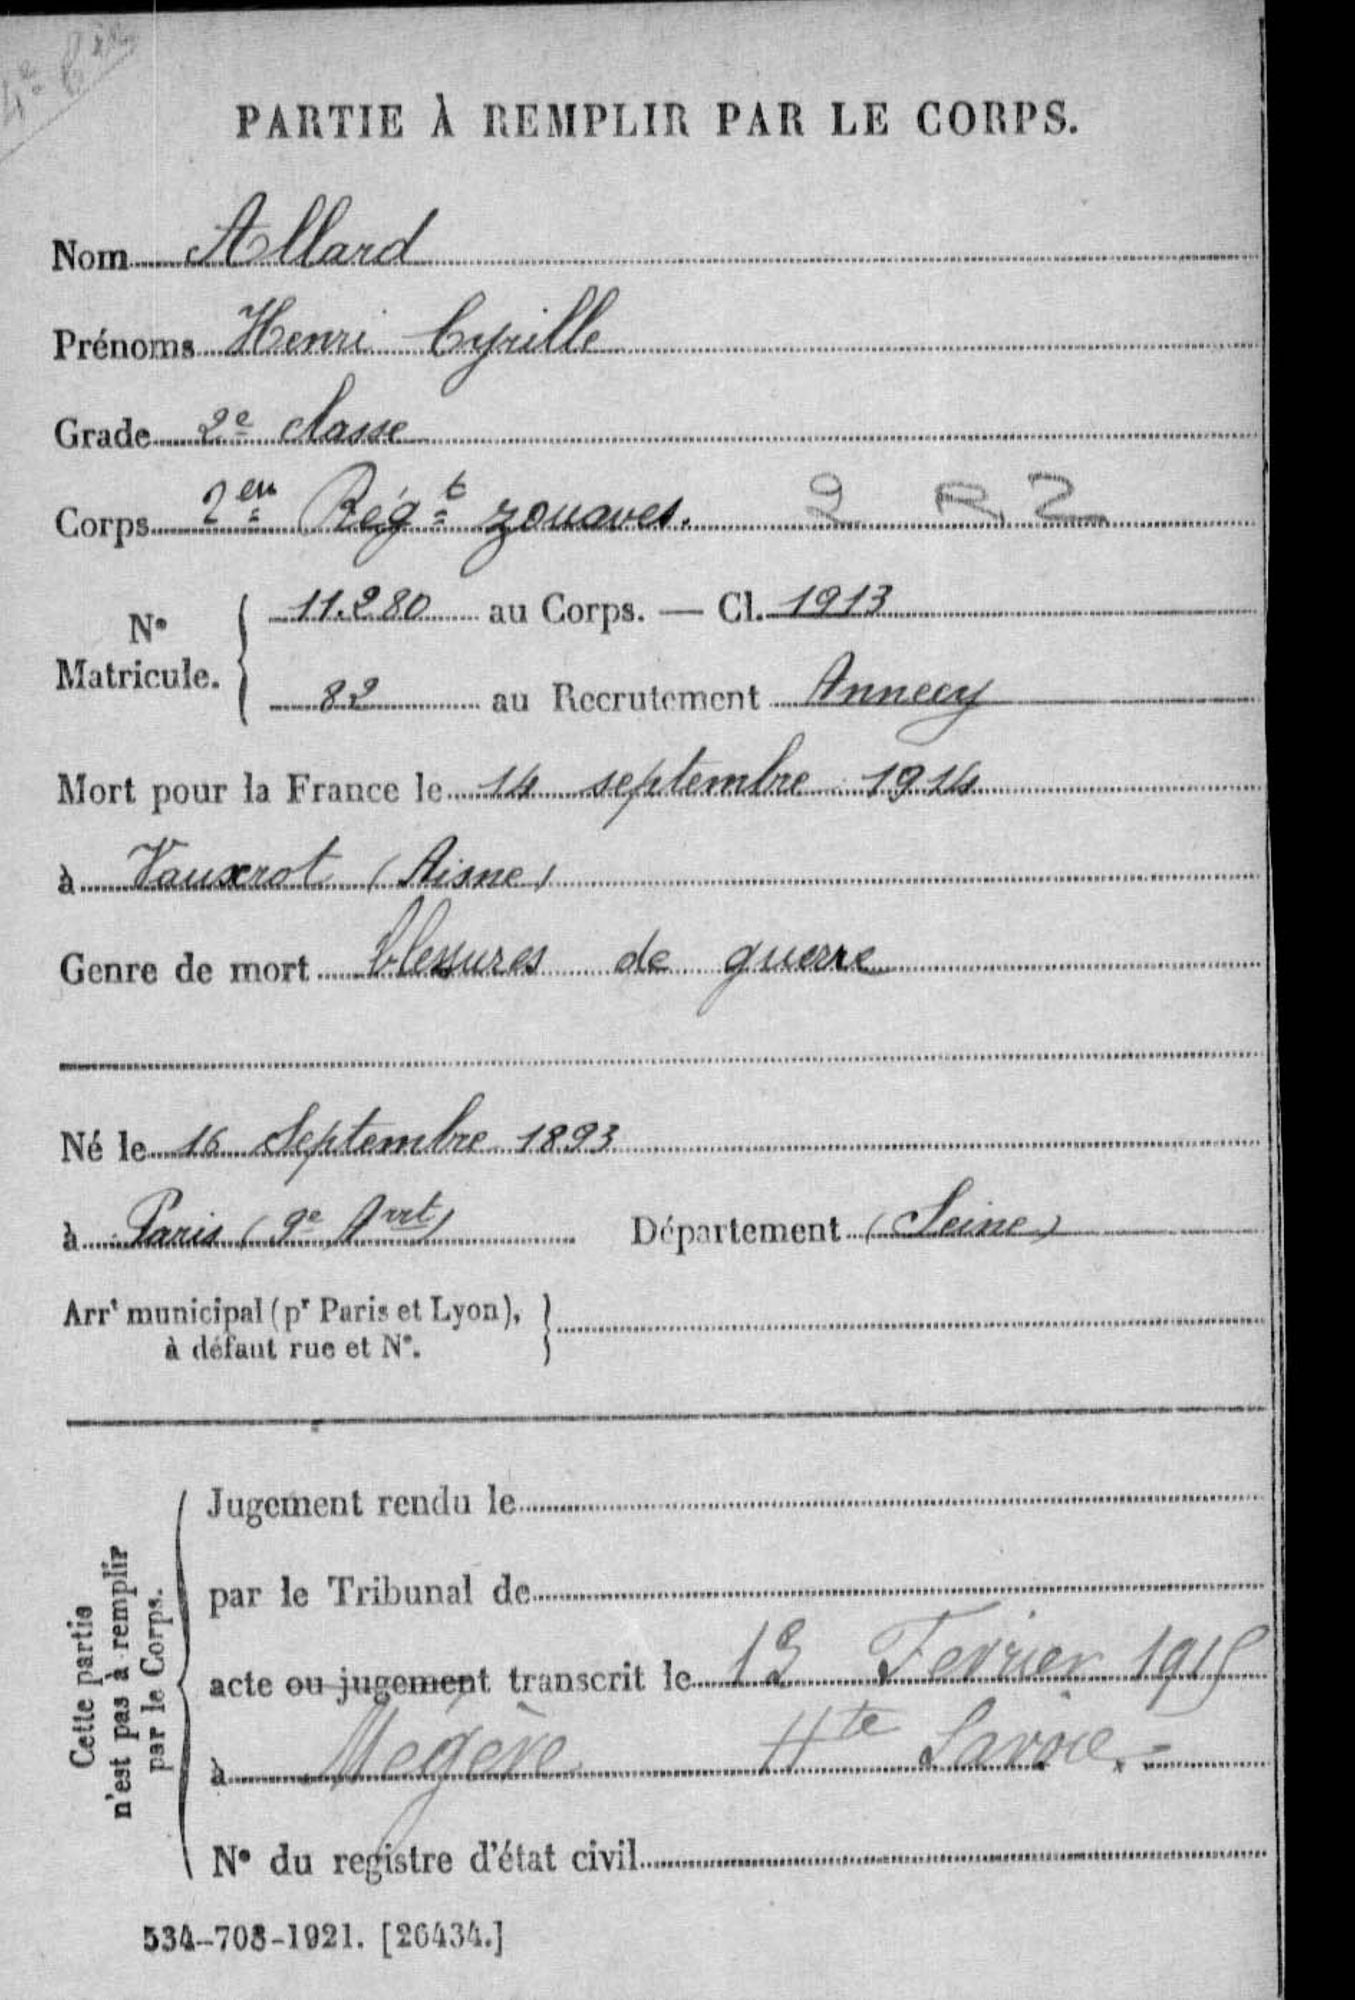 4e Bon
PARTIE À REMPLIR PAR LE CORPS.
Nom Allard
Prénoms Henri Cyrille
Grade 2e classe
Corps 2em Régt zouaves. 2 R Z
No Matricule. { 11.280 au Corps. — Cl. 1913
82 au Recrutement Annecy
Mort pour la France le 14 septembre 1914
à Vauxrot (Aisne)
Genre de mort blessures de guerre
Né le 16 Septembre 1893
à Paris (9e Arrt) Département (Seine)
Arrt municipal (pr Paris et Lyon), à défaut rue et No. }
Cette partie n'est pas à remplir par le Corps. {
Jugement rendu le
par le Tribunal de
acte ou jugement transcrit le 13 Fevrier 1915
à Megève Hte Savoie.=
No du registre d'état civil
534-708-1921. [26434.]